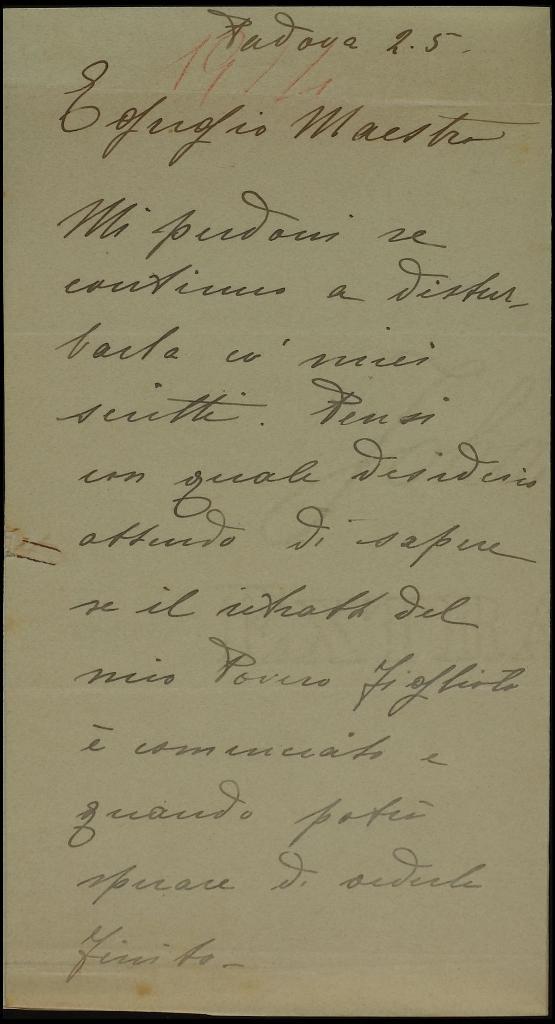 Padova 2.5.
Egregio Maestro
Mi perdoni se
continuo a distur-
barla co' miei
scritti. Pensi
con quale desiderio
attendo di sapere
se il ritratto del
mio Povero Figliolo
è cominciato e
quando potrò
sperare di vederlo
finito-